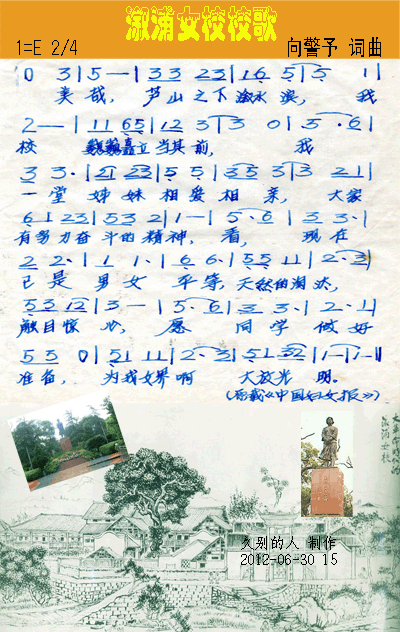 溆浦女校校歌
1=E 2/4 向警予 词曲
0 3 | 5 — | 3 3 2 3 | 1 6 5 | 5 1 |
美哉, 芦山之下溆水滨, 我
2 — | 1 1 6 5 | 1 2 3 | 3 0 | 5 · 6 |
校 巍巍矗立当其前, 我
3 3 · | 2 1 2 3 | 5 5 | 3 5 3 | 3 2 1 |
一堂 姊妹相爱相亲, 大家
6 1 2 3 | 5 3 2 | 1 — | 5 · 6 | 3 3 · |
有努力奋斗的精神, 看, 现在
2 2 · | 1 1 · | 6 6 · | 5 5 1 1 | 2 · 3 |
已是男女平等, 天然的淘汰,
5 3 1 2 | 3 — | 5 · 6 | 3 3 · | 2 · 1 |
触目惊心, 愿同学做好
5 5 0 | 5 1 1 1 | 2 · 3 | 5 1 3 2 | 1 — | 1 — ‖
准备, 为我女界啊 大放光明。
(原载《中国妇女报》)
溆浦女校
久别的人 制作
2012-06-30 15